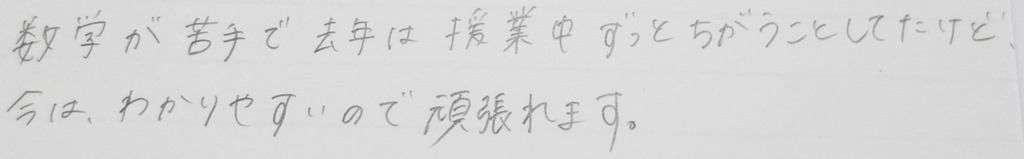 数学が苦手で去年は授業中ずっとちがうことしてたけど、
今は、わかりやすいので頑張れます。